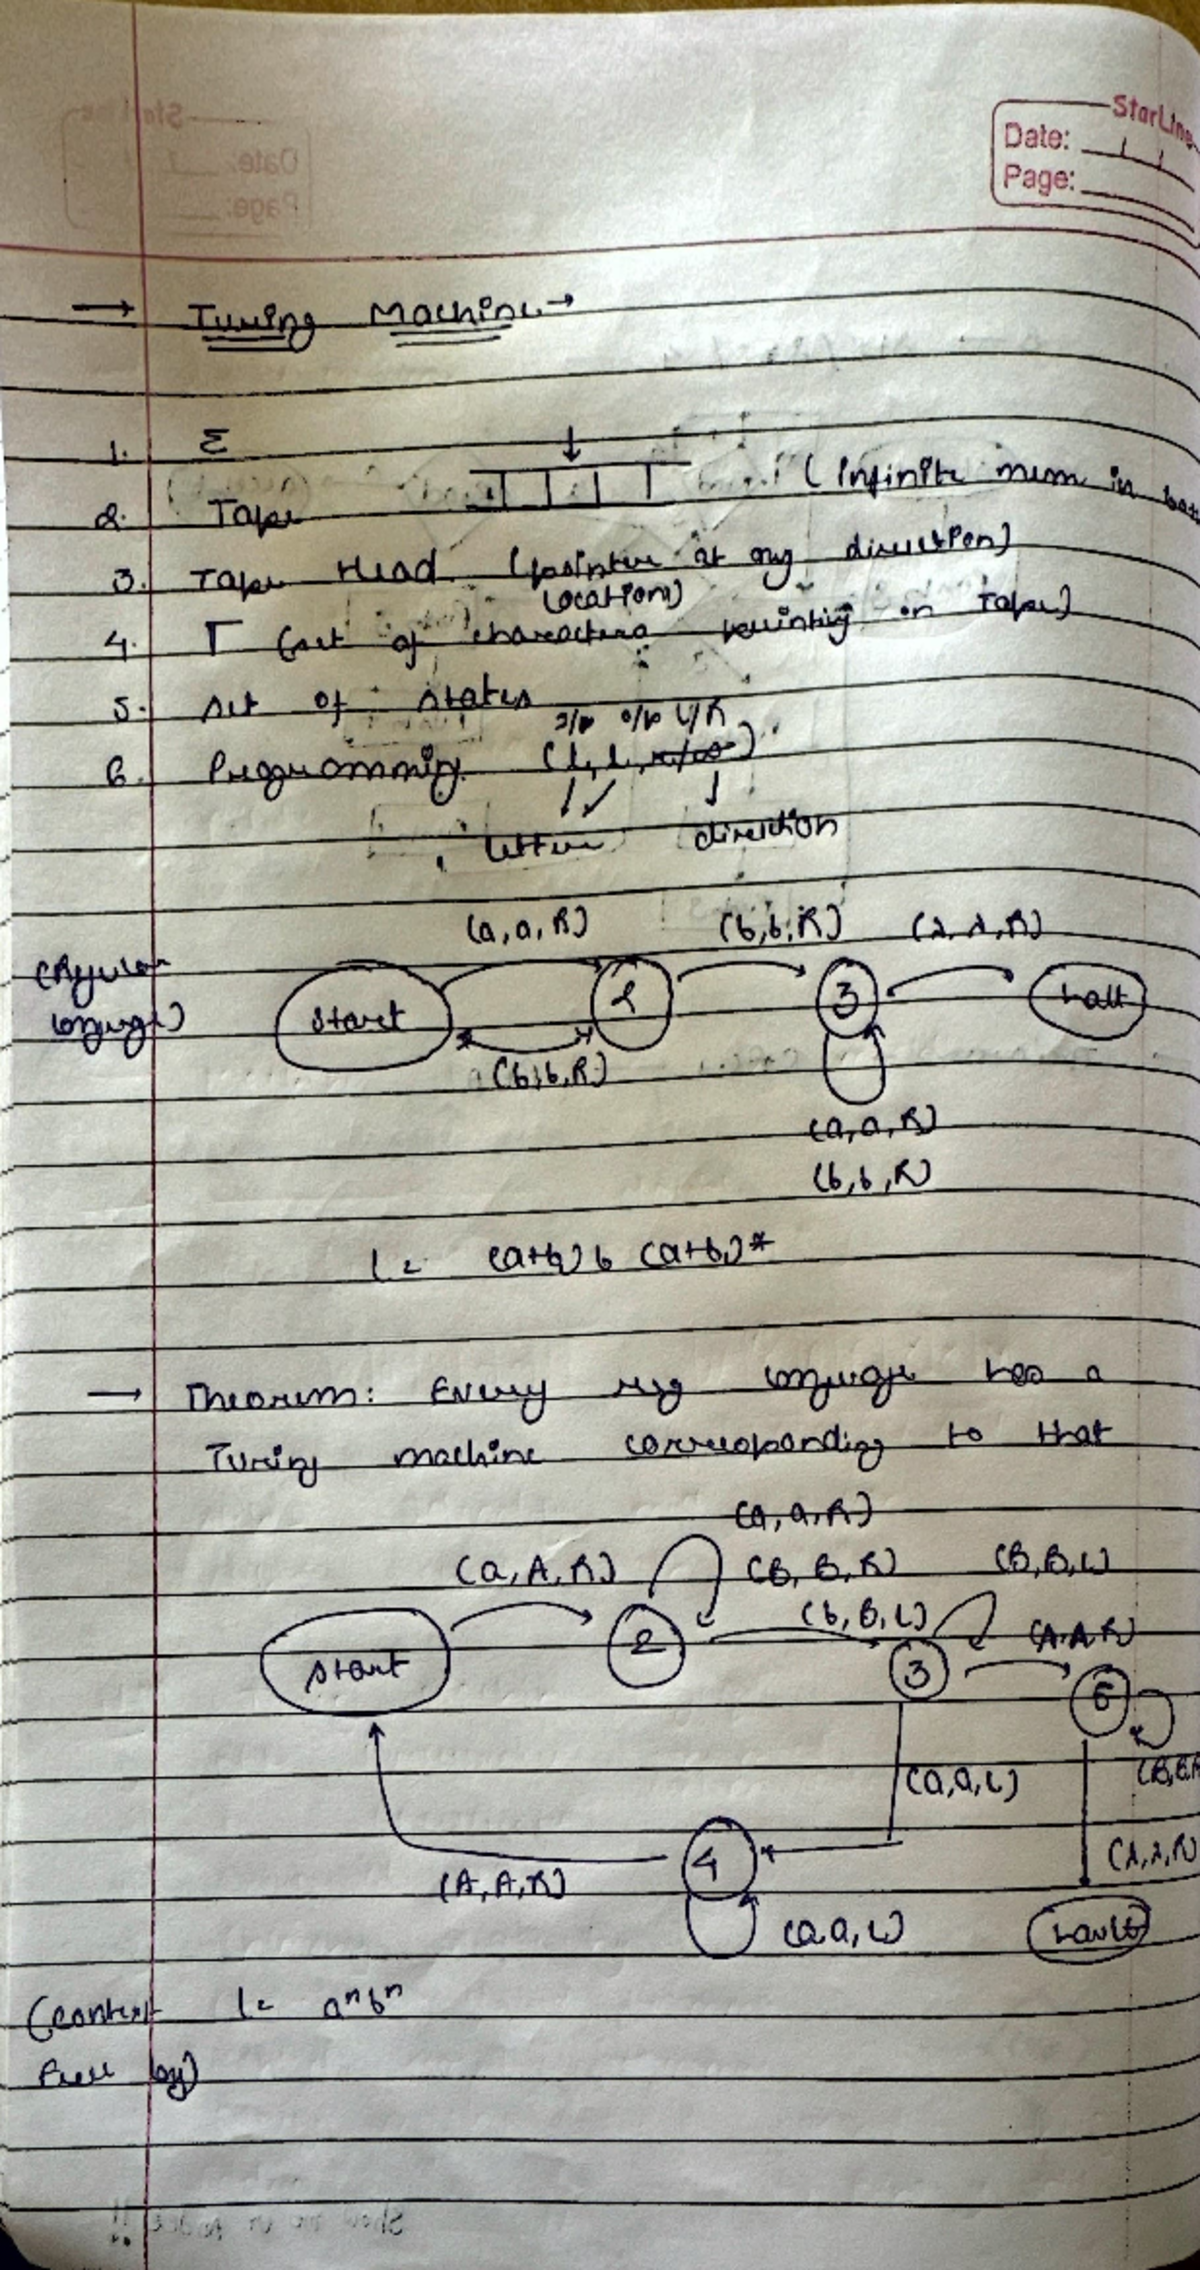 StarLine
Date:
Page:
→ Turing Machine →
1. Σ
2. Tape (infinite mem in
3. Tape Head (pointer at any direction)
location)
4. Γ (set of characters printing on Tape)
5. set of states
L/R
6. Programming (L, L,
letter direction
(a, a, R) (b, b, R) (λ, λ, R)
(Regular
language)
start 2 3 halt
(b, b, R)
(a, a, R)
(b, b, R)
L = (a+b) b (a+b)*
→ Theorem: Every reg language has a
Turing machine corresponding to that
(a, a, R)
(a, A, R) (B, B, R) (B, B, L)
(b, B, L) (A, A, R)
start 2 3 5
(a, a, L) (B, B, R
4 (λ, λ, R)
(A, A, R)
(a, a, L) hault
(context L = aⁿbⁿ
free lag)